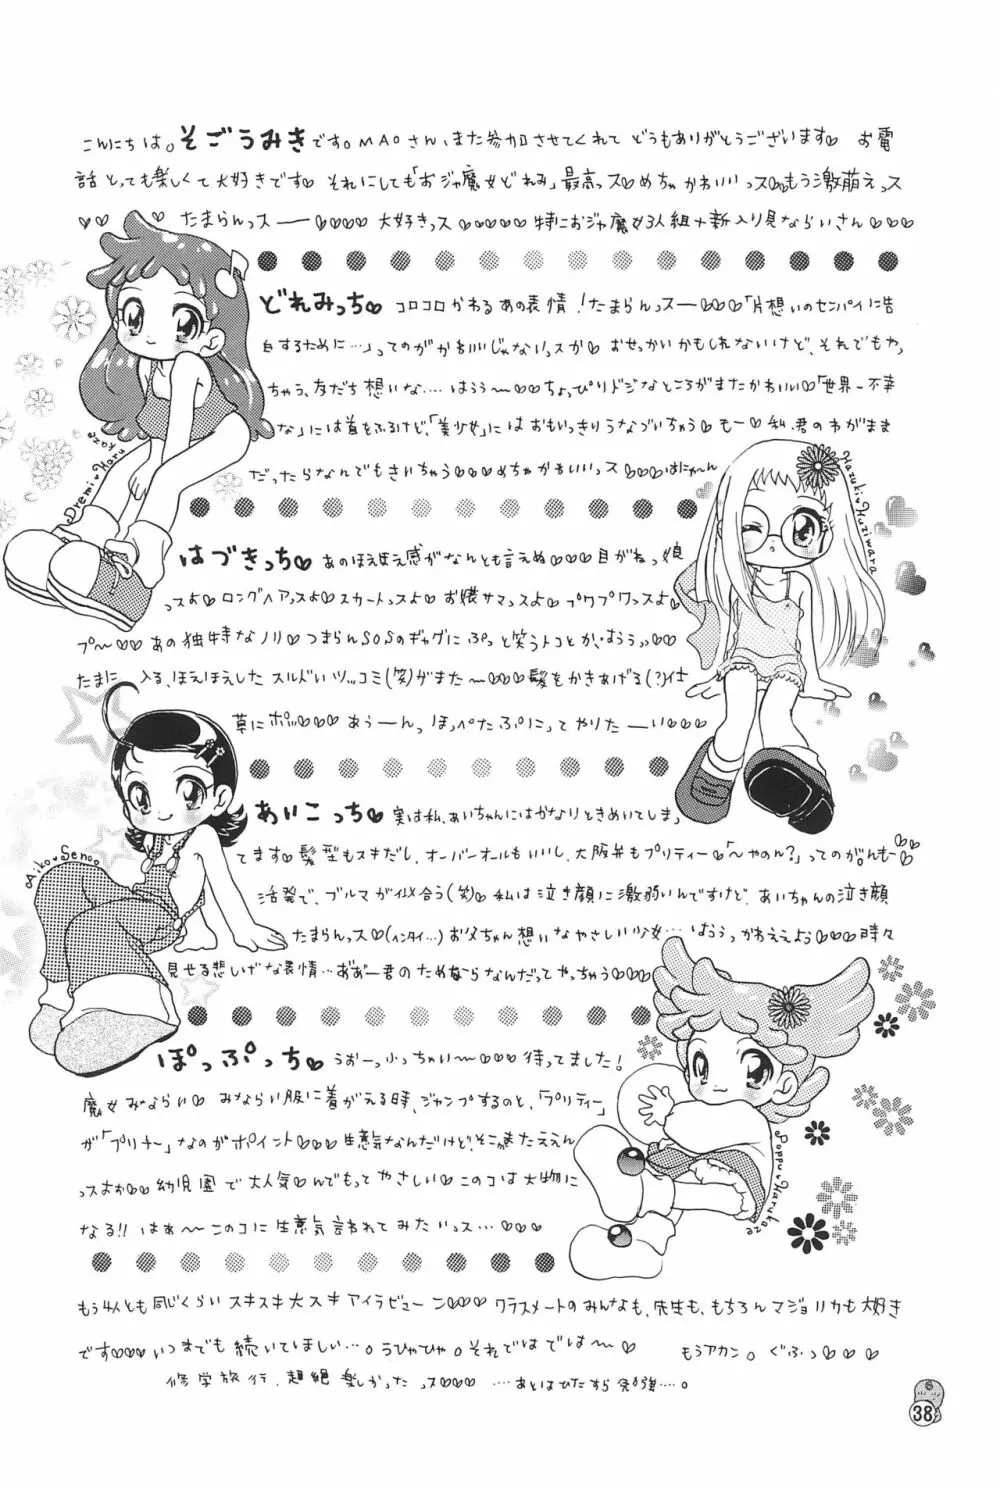 こんにちは。そごうみきです。MAOさん、また参加させてくれて どうもありがとうございます♡ お電
話とっても楽しくて大好きです♡ それにしても「おジャ魔女どれみ」最高っス♡めちゃかわいいっス♡♡もう激萌えっス
♡♡ たまらんっスーー♡♡♡♡ 大好きっス♡♡♡♡♡ 特におジャ魔女3人組+新入り見ならいさん♡♡♡
どれみっち♡ コロコロかわるあの表情!たまらんっスー♡♡♡「片想いのセンパイに告
白するために…」ってのがかわいいじゃないっスか♡ おせっかいかもしれないけど、それでもやっ
ちゃう、友だち想いな…. はうう〜♡♡ちょっぴりドジなところがまたかわいい♡「世界一不幸
な」には首をふるけど、「美少女」にはおもいっきりうなづいちゃう♡ もー♡私、君のわがまま
だったらなんでもきいちゃう♡♡♡めちゃかわいいっス♡♡♡はにゃ〜ん
Doremi♥Haru
はづきっち♡ あのほえほえ感がなんとも言えぬ♡♡♡目がねっ娘
っスよ♡ロングヘアっスよ♡スカートっスよ♡ お嬢サマっスよ♡プワプワっスよ♡
プ〜♡♡ あの独特なノリ♡つまらんSOSのギャグにぷっと笑うトコとか、はううっ♡♡
たまに入る、ほえほえしたスルドいツッコミ(笑)がまた〜♡♡♡髪をかきあげる(?)仕
草にポッ♡♡♡ あうーん、ほっぺたぷにってやりたーい♡♡♡
Hazuki♥Huziwara
あいこっち♡ 実は私、あいちゃんにはかなりときめいてしまっ
てます♡髪型もスキだし、オーバーオールもいいし、大阪弁もプリティー♡「〜やのん?」ってのがんもー♡♡
活発で、ブルマが似合う(笑)♡私は泣き顔に激弱いんですけど、あいちゃんの泣き顔
たまらんっス♡(ヘンタイ…)お父ちゃん想いなやさしい少女…♡はううっかわええよう♡♡♡時々
見せる悲しげな表情…おおー君のためならなんだってやっちゃう♡♡♡
Aiko♥Senoo
ぽっぷっち♡ うおーっ、ふっちゃい〜♡♡♡待ってました!
魔女みならい♡みならい服に着がえる時、ジャンプするのと、「プリティー」
が「プリチー」なのがポイント♡♡♡生意気なんだけど、そこがまたええん
っスよお♡♡幼児園で大人気♡んでもってやさしい♡このコは大物に
なる!! はぁ〜このコに生意気言われてみたいっス…♡♡♡
Poppu♥Harukaze
もう4人とも同じくらいスキスキ大スキアイラビューン♡♡♡ クラスメートのみんなも、先生も、もちろんマジョリカも大好き
です♡♡♡いつまでも続いてほしい…。うひゃひゃ。それではでは〜♡ もうアカン。ぐふっ♡♡♡
修学旅行、超絶楽しかったっス♡♡♡ ….あとはひたすら
38